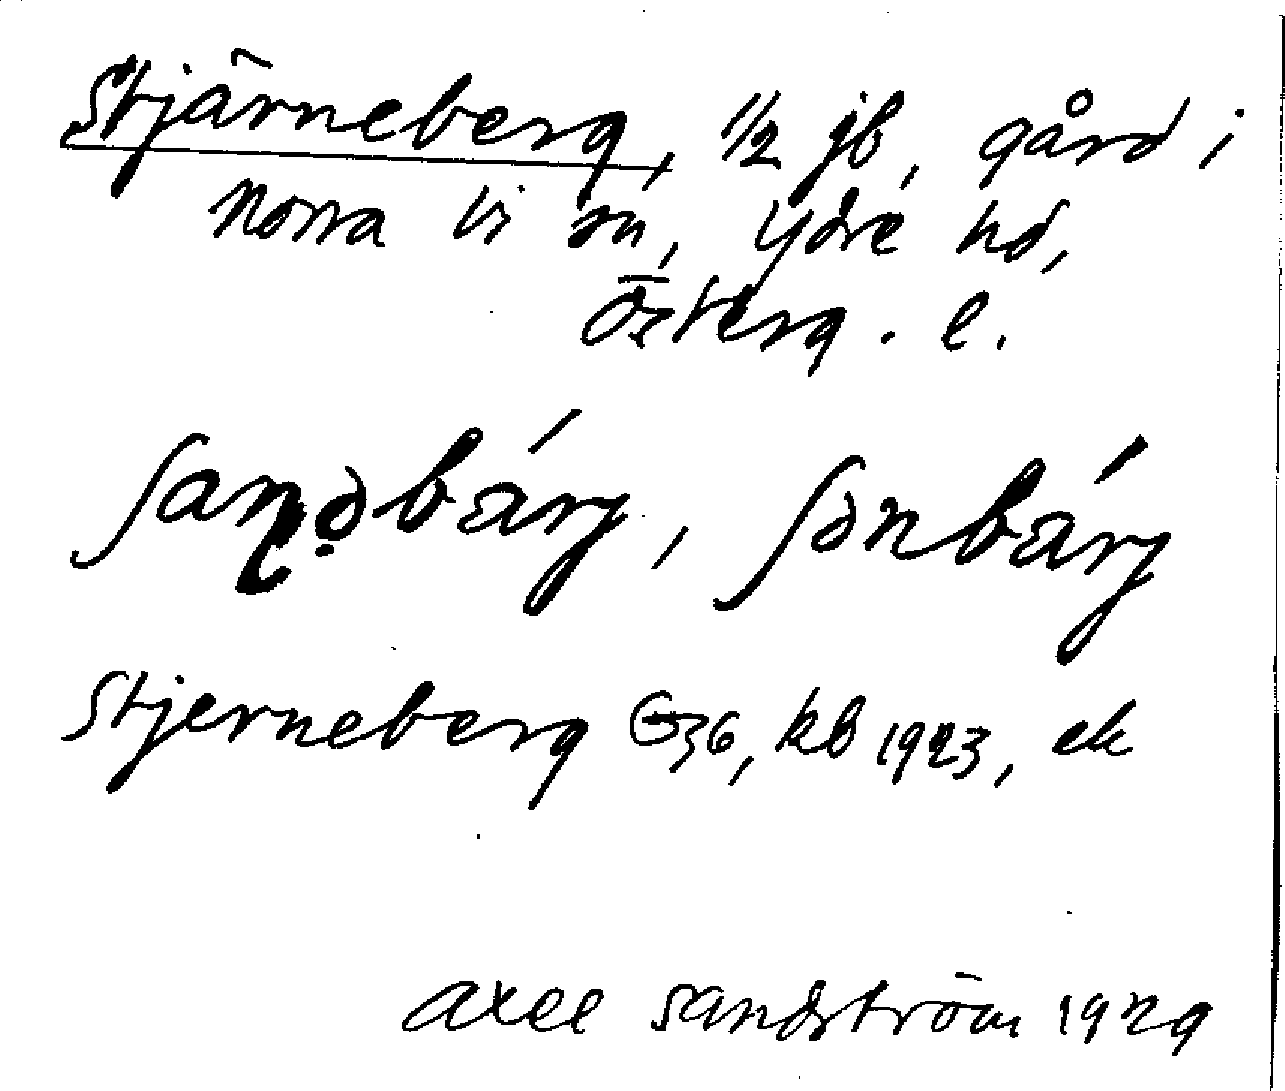 Stjärneberg, 1/2 jb, gård i
Norra Vi sn, Ydre hd,
Österg. l.
ʃaɳə̣bárj, ʃɔnbárj
Stjerneberg G36, kb 1923, ek
Axel Sandström 1929